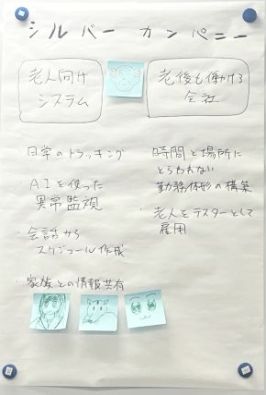 シルバー カンパニー
老人向け
システム
老後も働ける
会社
日常のトラッキング
AIを使った
異常監視
・会話から
スケジュール作成
家族との情報共有
時間と場所に
とらわれない
勤務体形の構築
・老人をテスターとして
雇用